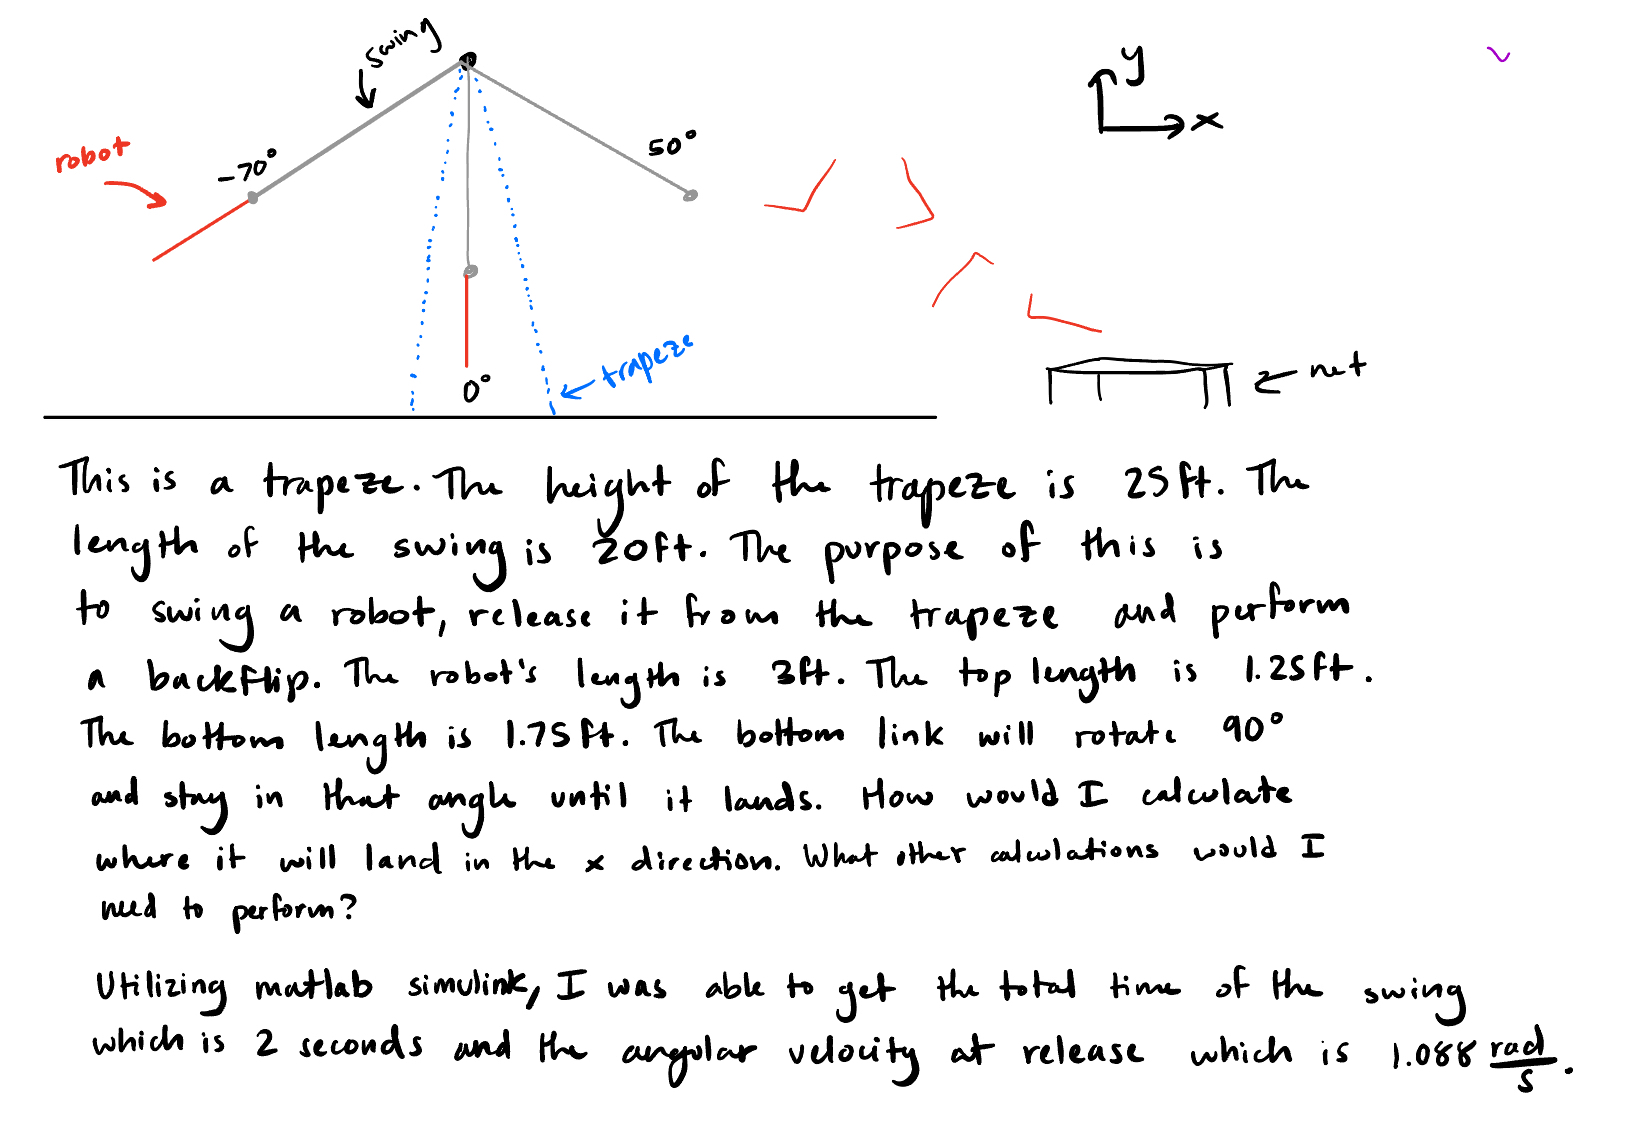 swing
y
x
robot
-70°
50°
trapeze
0°
net
This is a trapeze. The height of the trapeze is 25ft. The
length of the swing is 20ft. The purpose of this is
to swing a robot, release it from the trapeze and perform
a backflip. The robot's length is 3ft. The top length is 1.25ft.
The bottom length is 1.75ft. The bottom link will rotate 90°
and stay in that angle until it lands. How would I calculate
where it will land in the x direction. What other calculations would I
need to perform?
Utilizing matlab simulink, I was able to get the total time of the swing
which is 2 seconds and the angular velocity at release which is 1.088 rad/s.